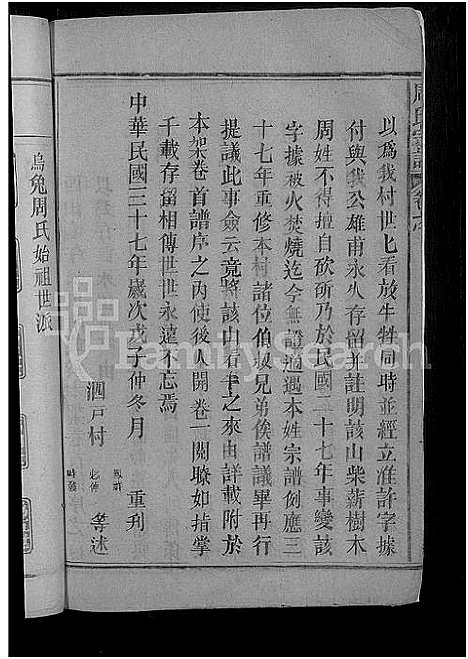 周氏宗譜
以爲我村世七看放牛牲同時並經立准許字據
付與我公雄甫永久存留並註明該山柴薪樹木
周姓不得擅自砍所乃於民國二十七年事變該
字據被火焚燒迄今無證適遇本姓宗譜例應三
十七年重修本村諸位伯叔兄弟俟譜議畢再行
提議此事僉云竟將該山看牛之來由詳載附於
本架卷首譜序之內使後人開卷一閱瞭如指掌
千載存留相傳世世永遠不忘焉
中華民國三十七年歲次戊子仲冬月 重刋
泗戸村
必傳
等述
烏兔周氏始祖世派
FamilySearch